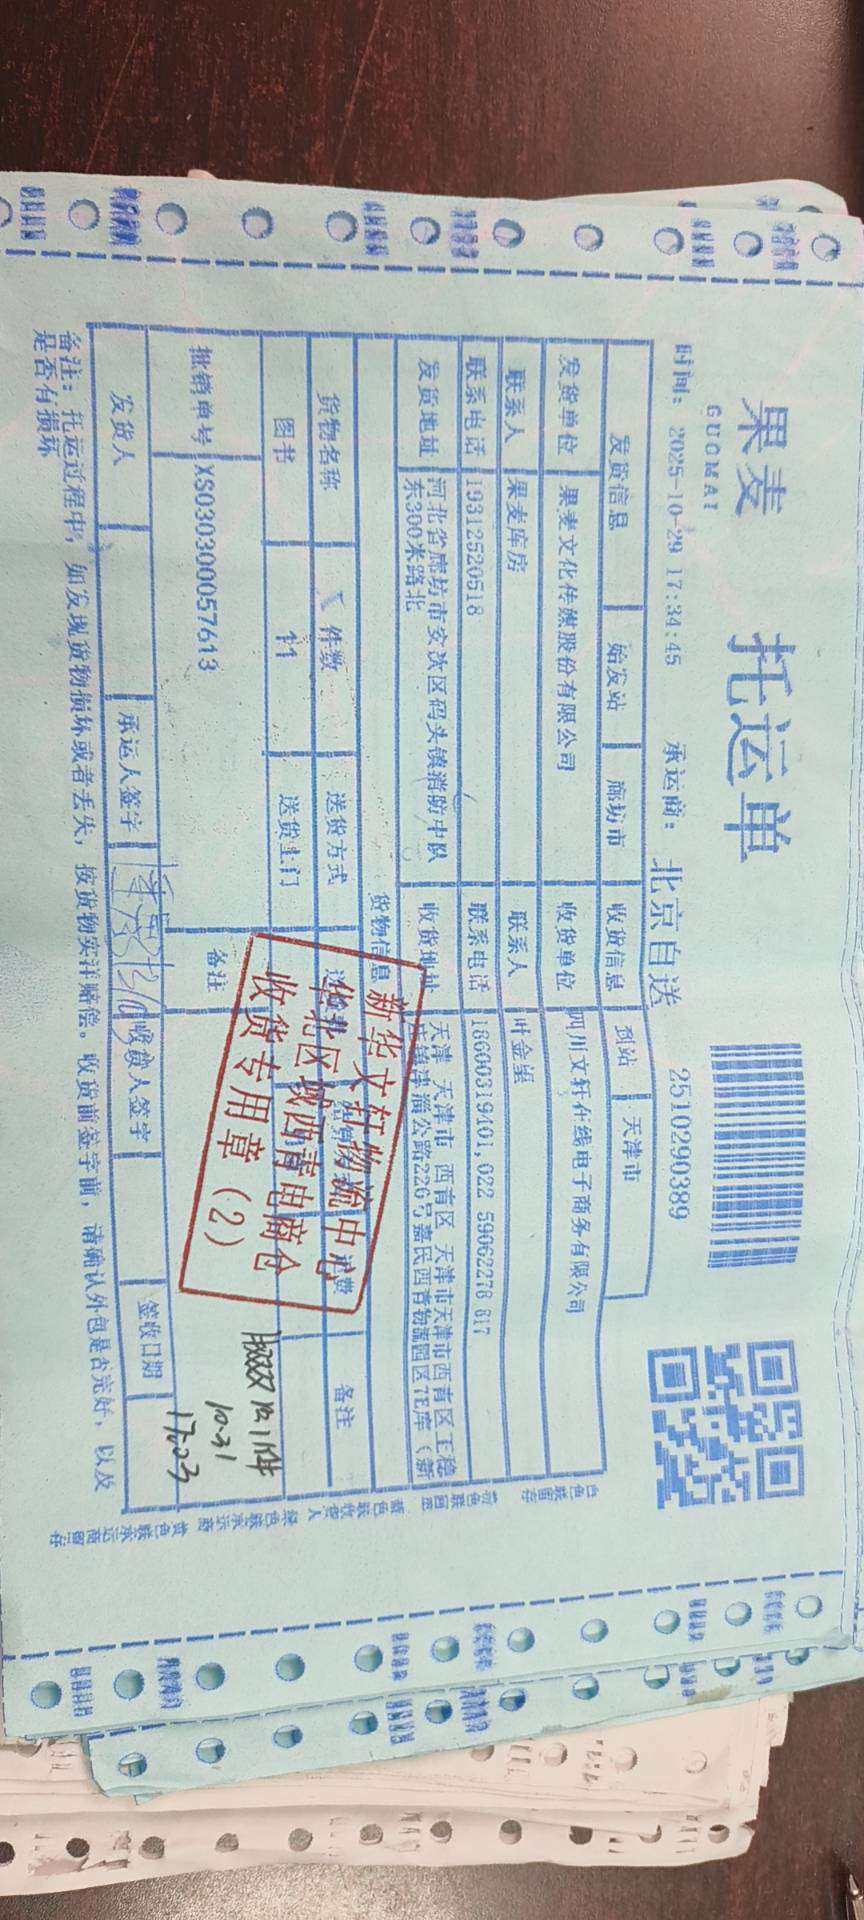 果麦 托运单
GUOMAI
时间: 2025-10-29 17:34:45 承运商: 北京自送 2510290389
发货信息 始发站 廊坊市 收货信息 到站 天津市
发货单位 果麦文化传媒股份有限公司 收货单位 四川文轩在线电子商务有限公司
联系人 果麦库房 联系人 叶金
联系电话 19312520518 联系电话 18600319401,022 59062278 817
发货地址 河北省廊坊市安次区码头镇消防中队 收货地址 天津 天津市 西青区 天津市天津市西青区王稳
东300米路北 镇津淄公路226号嘉民西青物流园区 库(新
货物信息
货物名称 件数 送货方式 备注
图书 11 送货上门
批销单号 XS030300057613 备注
发货人 承运人签字 收货人签字 签收日期
备注: 托运过程中, 如发现货物损坏或者丢失, 按货物实洋赔偿。收货前签字前, 请确认外包是否完好, 以及
是否有损坏
新华文轩物流中心
华北区域西青电商仓
收货专用章(2)
10.31
17:03
白色联留存
蓝色联收货人
绿色联承运商
黄色联承运商留存